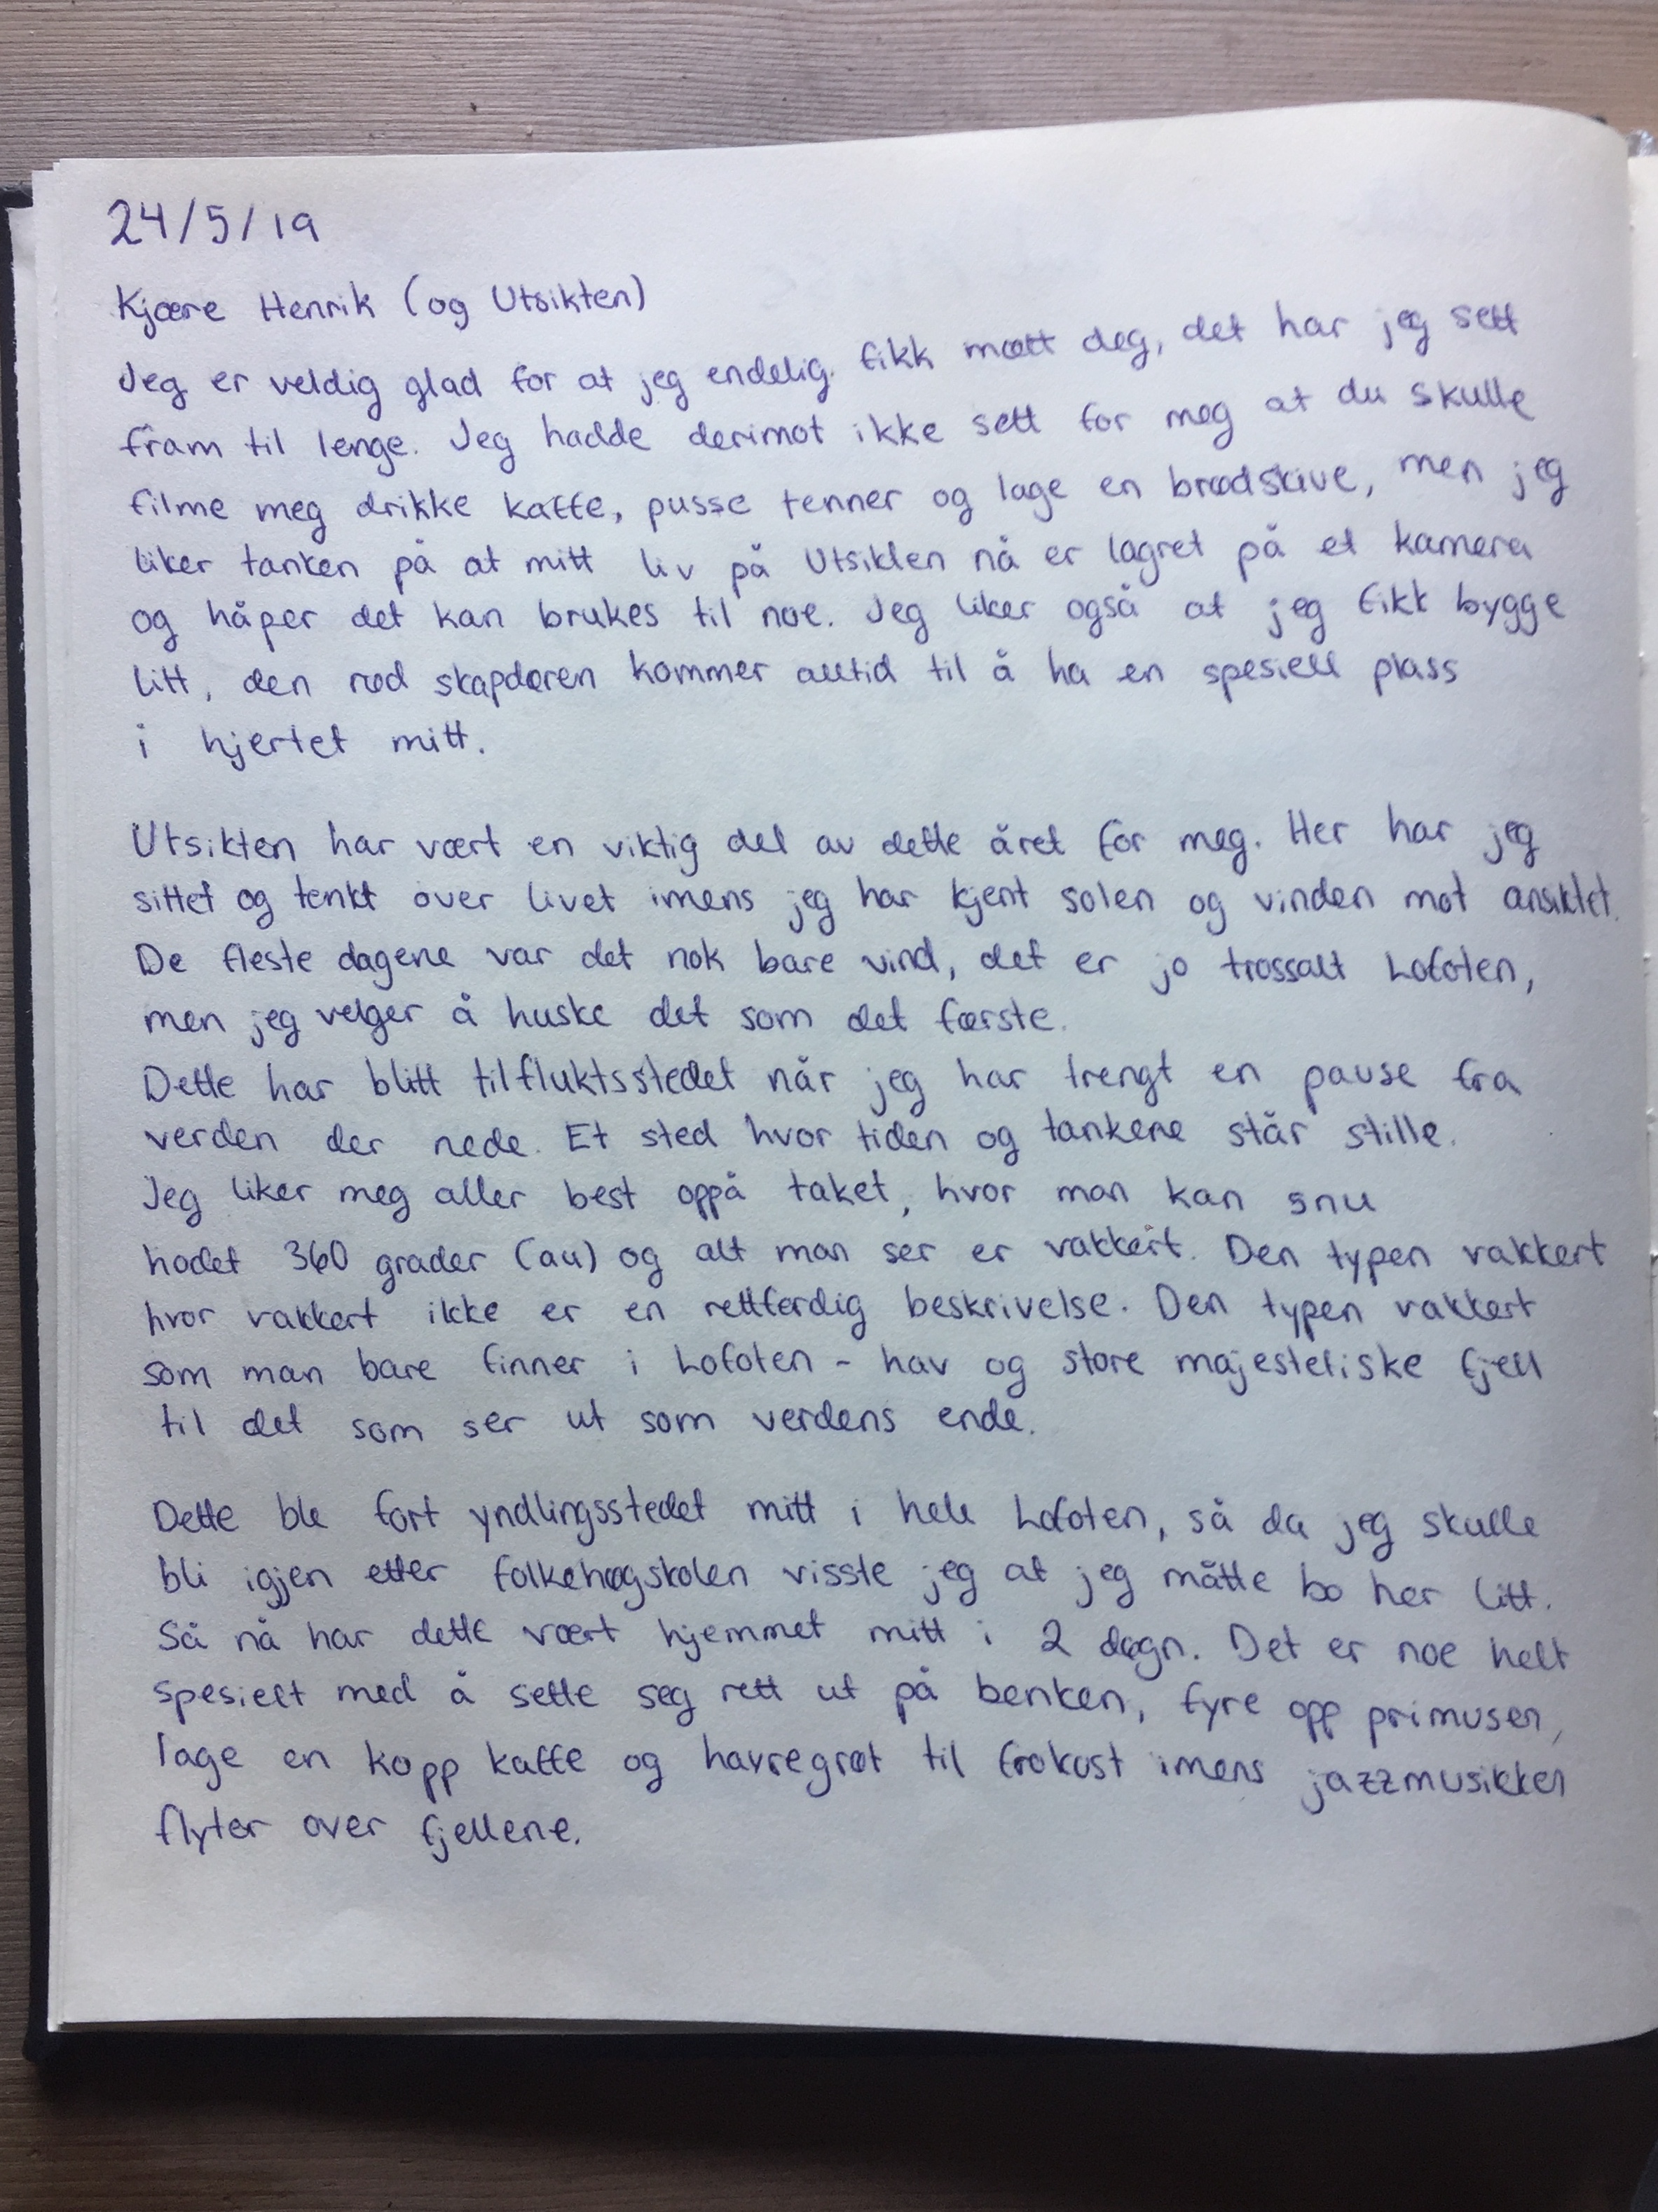 24/5/19
Kjære Henrik (og Utsikten)
Jeg er veldig glad for at jeg endelig fikk møtt deg, det har jeg sett
fram til lenge. Jeg hadde derimot ikke sett for meg at du skulle
filme meg drikke kaffe, pusse tenner og lage en brødskive, men jeg
liker tanken på at mitt liv på Utsikten nå er lagret på et kamera
og håper det kan brukes til noe. Jeg liker også at jeg fikk bygge
litt, den rød skapdøren kommer alltid til å ha en spesiell plass
i hjertet mitt.
Utsikten har vært en viktig del av dette året for meg. Her har jeg
sittet og tenkt over livet imens jeg har kjent solen og vinden mot ansiktet.
De fleste dagene var det nok bare vind, det er jo trossalt Lofoten,
men jeg velger å huske det som det første.
Dette har blitt tilfluktsstedet når jeg har trengt en pause fra
verden der nede. Et sted hvor tiden og tankene står stille.
Jeg liker meg aller best oppå taket, hvor man kan snu
hodet 360 grader (au) og alt man ser er vakkert. Den typen vakkert
hvor vakkert ikke er en rettferdig beskrivelse. Den typen vakkert
som man bare finner i Lofoten - hav og store majestetiske fjell
til det som ser ut som verdens ende.
Dette ble fort yndlingsstedet mitt i hele Lofoten, så da jeg skulle
bli igjen etter folkehøgskolen visste jeg at jeg måtte bo her litt.
Så nå har dette vært hjemmet mitt i 2 døgn. Det er noe helt
spesielt med å sette seg rett ut på benken, fyre opp primusen,
lage en kopp kaffe og havregrøt til frokost imens jazzmusikken
flyter over fjellene.